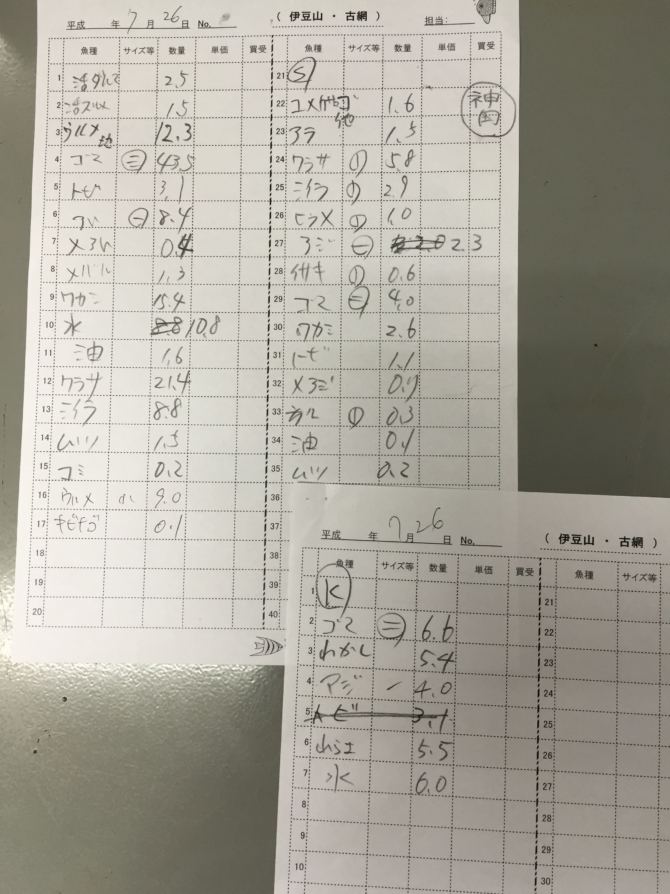 平成 年 7 月 26 日 No.
( 伊豆山 ・ 古網 ) 担当:
魚種 サイズ等 数量 単価 買受
1 2.5
2 活スルメ 1.5
3 ウルメ 地 12.3
4 ゴマ ㊂ 43.5
5 トビ 3.1
6 ㊀ 8.4
7 0.4
8 メバル 1.3
9 ワカシ 15.4
10 水 10.8
11 油 1.6
12 ワラサ 21.4
13 ミイラ 8.8
14 ムツ 1.5
15 ゴミ 0.2
16 ウルメ 小 9.0
17 キビナゴ 0.1
18
19
20
魚種 サイズ等 数量 単価 買受
21 Ⓢ
22 1.6
神
23 アラ 1.5
24 ワラサ 5.8
25 ミイラ 2.9
26 ヒラメ 1.0
27 アジ ㊀ 2.3
28 イサキ 0.6
29 ゴマ ㊂ 4.0
30 ワカシ 2.6
31 トビ 1.1
32 メアジ
33 0.3
34 油 0.1
35 ムツ 0.2
36
37
38
39
40
平成 年 7 月 26 日 No.
( 伊豆山 ・ 古網 )
魚種 サイズ等 数量 単価 買受
1 Ⓚ
2 ゴマ ㊂ 6.6
3 わかし 5.4
4 アジ 一 4.0
5 トビ 3.1
6 5.5
7 水 6.0
8
9
10
魚種 サイズ等
21
22
23
24
25
26
27
28
29
30